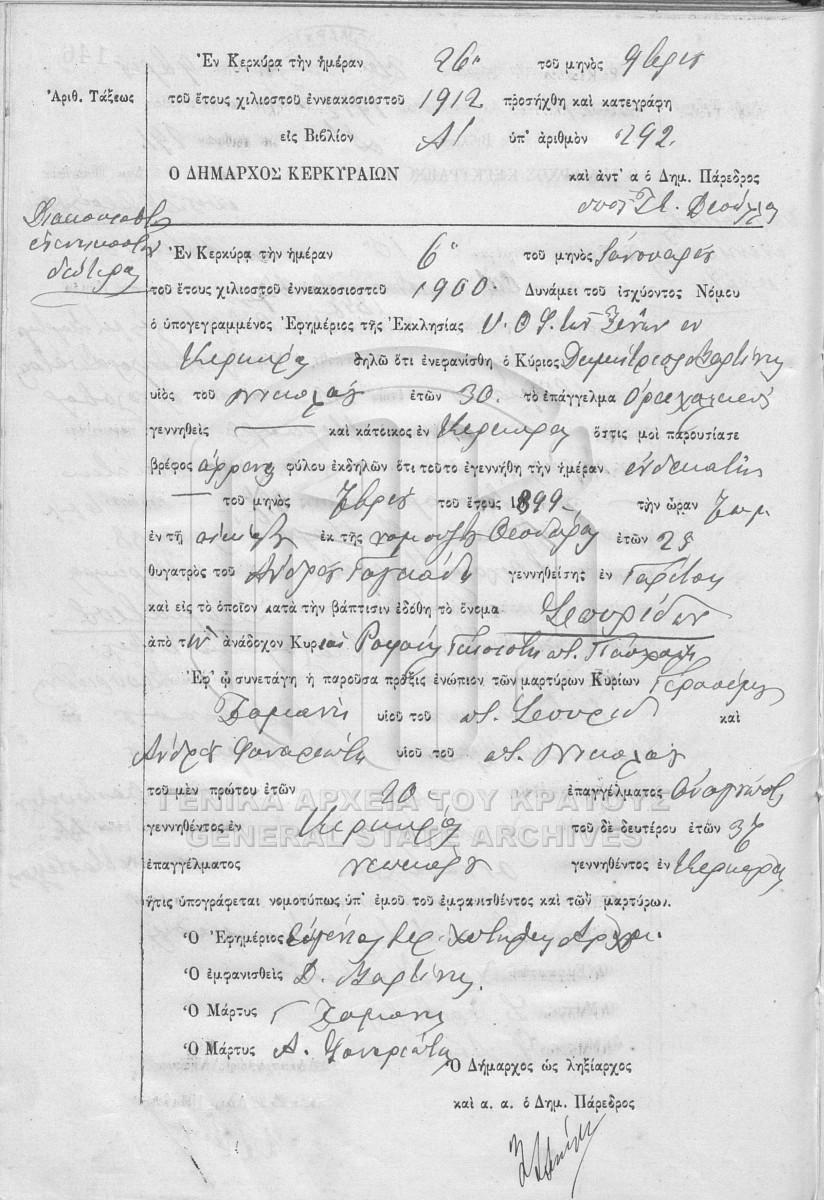 Ἐν Κερκύρᾳ τὴν ἡμέραν 26ῃ τοῦ μηνὸς 9βρίου
Ἀριθ. Τάξεως
τοῦ ἔτους χιλιοστοῦ ἐννεακοσιοστοῦ 1912 προσήχθη καὶ κατεγράφη
εἰς Βιβλίον Αʹ ὑπ' ἀριθμὸν 292.
Ο ΔΗΜΑΡΧΟΣ ΚΕΡΚΥΡΑΙΩΝ καὶ ἀντ' α ὁ Δημ. Πάρεδρος
Διακοσιοστὴ
ἐνενηκοστὴ
δευτέρα
Ἐν Κερκύρᾳ τὴν ἡμέραν 6ῃ τοῦ μηνὸς Ἰανουαρίου
τοῦ ἔτους χιλιοστοῦ ἐννεακοσιοστοῦ 1900. Δυνάμει τοῦ ἰσχύοντος Νόμου
ὁ ὑπογεγραμμένος Ἐφημέριος τῆς Ἐκκλησίας Υ. Θ. τῶν Ξένων ἐν
Κερκύρᾳ δηλῶ ὅτι ἐνεφανίσθη ὁ Κύριος Δημήτριος Μαρτίνης
υἱὸς τοῦ Νικολάου ἐτῶν 30. τὸ ἐπάγγελμα
γεννηθεὶς καὶ κάτοικος ἐν Κερκύρᾳ ὅστις μοὶ παρουσίασε
βρέφος ἄρρεν φύλου ἐκδηλῶν ὅτι τοῦτο ἐγεννήθη τὴν ἡμέραν ἑνδεκάτην
τοῦ μηνὸς τοῦ ἔτους 1899 τὴν ὥραν
ἐν τῇ οἰκίᾳ ἐκ τῆς νομ. συζ. Θεοδώρας ἐτῶν 25
θυγατρὸς τοῦ Ἀνδρέου γεννηθείσης ἐν Γαρίτσῃ
καὶ εἰς τὸ ὁποῖον κατὰ τὴν βάπτισιν ἐδόθη τὸ ὄνομα Σπυρίδων
ἀπὸ τὴν ἀνάδοχον Κυρίαν
Ἐφ' ᾧ συνετάγη ἡ παροῦσα πρᾶξις ἐνώπιον τῶν μαρτύρων Κυρίων Γερασίμου
Δαμιανῆ υἱοῦ τοῦ ποτ. Σπυρίδ καὶ
Ἀνδρέου Φαναριώτη υἱοῦ τοῦ ποτ. Νικολάου
τοῦ μὲν πρώτου ἐτῶν 20 ἐπαγγέλματος ἀναγνώστ
ΓΕΝΙΚΑ ΑΡΧΕΙΑ ΤΟΥ ΚΡΑΤΟΥΣ
γεννηθέντος ἐν Κερκύρᾳ τοῦ δὲ δευτέρου ἐτῶν 37
GENERAL STATE ARCHIVES
ἐπαγγέλματος νεωκόρου γεννηθέντος ἐν Κερκύρᾳ
ἥτις ὑπογράφεται νομοτύπως ὑπ' ἐμοῦ τοῦ ἐμφανισθέντος καὶ τῶν μαρτύρων.
Ὁ Ἐφημέριος
Ὁ ἐμφανισθεὶς Δ. Μαρτίνης
Ὁ Μάρτυς Γ Δαμιανης
Ὁ Μάρτυς Α. Φαναριώτης
Ὁ Δήμαρχος ὡς ληξίαρχος
καὶ α. α. ὁ Δημ. Πάρεδρος